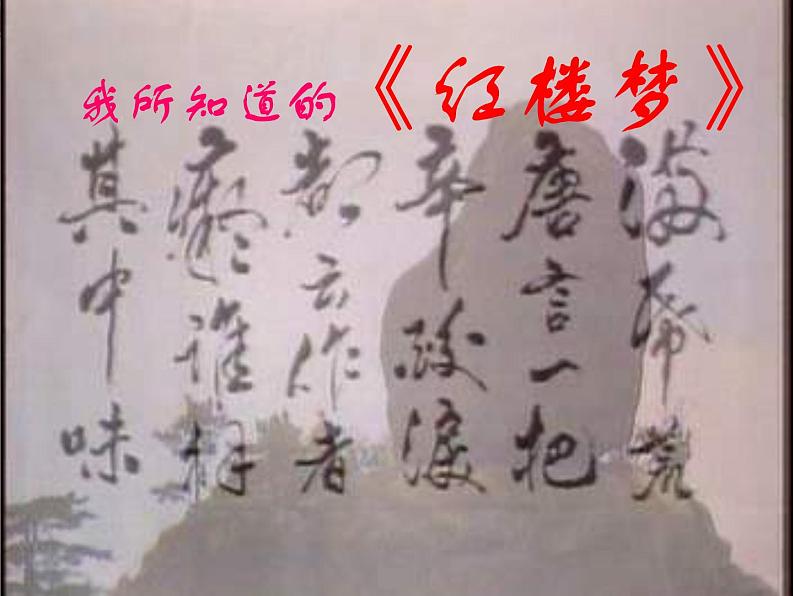 我所知道的《红楼梦》
滿帋荒
唐言一把
辛酸淚
都云作者
癡誰解
其中味